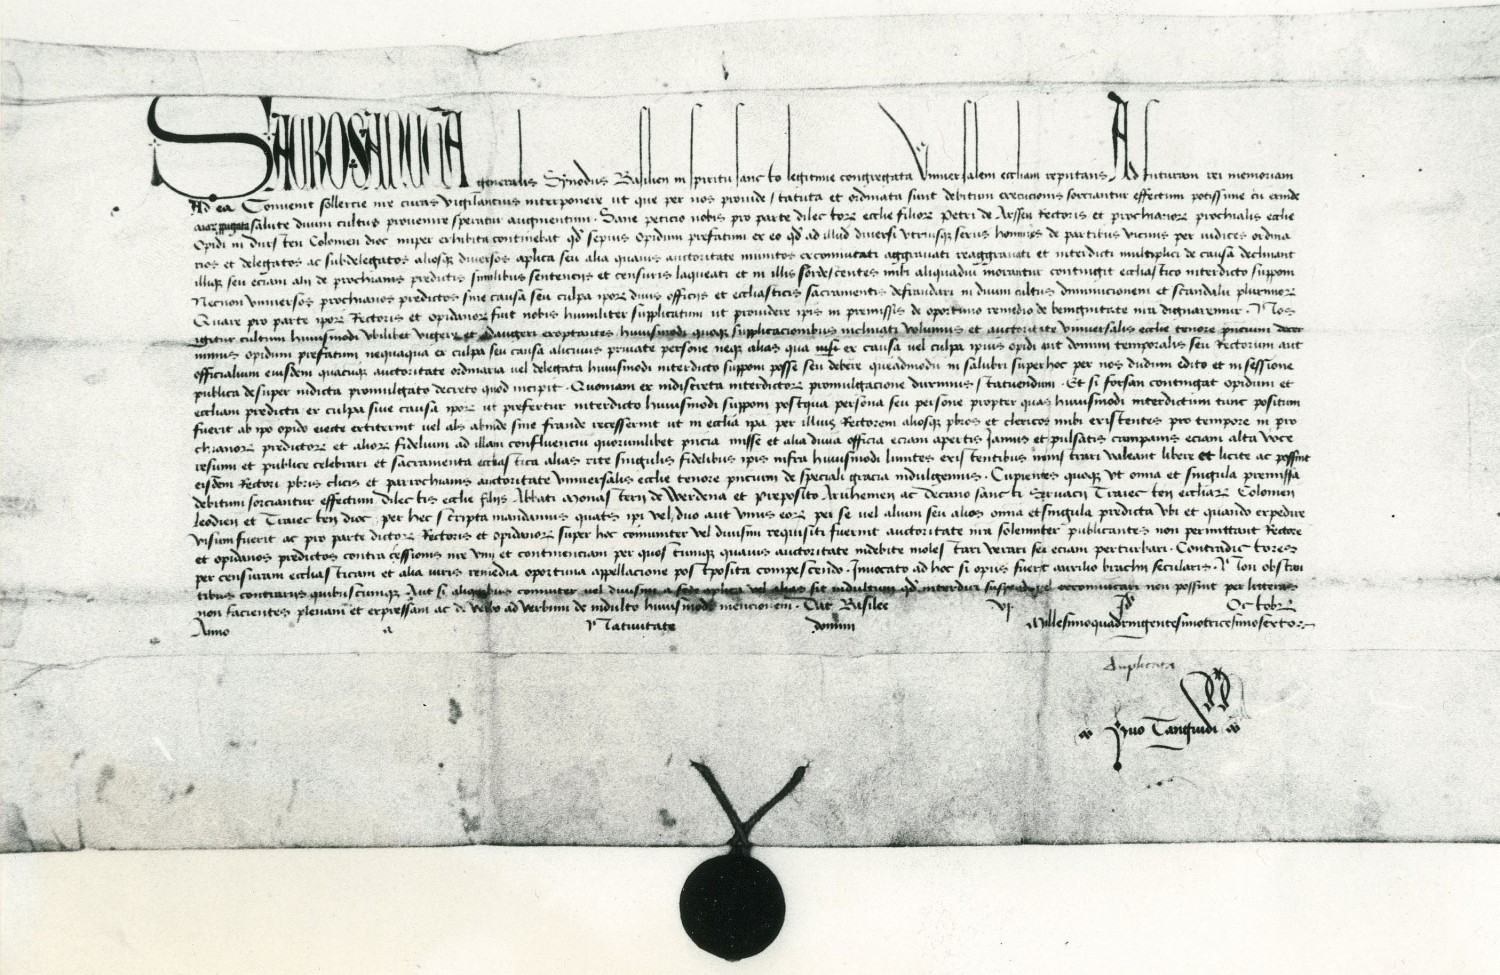 SACROSANCTA generalis Synodus Basilien in spiritu sancto legitime congregata Universalem eccliam representans Ad futuram rei memoriam
Ad ea Convenit sollercie nre curas vigilantius interponere ut que per nos provide statuta et ordinata sunt debitum execucionis sorciantur effectum potissime cu exinde
salute divini cultus provenire speratur augmentum. Sane peticio nobis pro parte dilectorz ecclie filiorz Petri de Arssen Rectoris et prochianorz prochialis ecclie
Opidi in Dursten Colonien dioc nuper exhibita continebat qd sepius Opidum prefatum ex eo qd ad illud diversi utriusqz sexus homines de partibus vicinis per iudices ordina
rios et delegatos ac subdelegatos aliosqz diversos aplica seu alia quavis auctoritate munitos excomuicati aggravati reaggravati et interdicti multiplici de causa declinant
illucqz seu eciam alii de prochianis predictis similibus sentenciis et censuris laqueati et in illis sordescentes inibi aliquadiu morantur contingit ecclastico interdicto supponi
Necnon universos prochianos predictos sine causa seu culpa iporz divinis officiis et ecclasticis sacramentis defraudari in divini cultus diminucionem et scandalu plurimorz
Quare pro parte iporz Rectoris et opidanorz fuit nobis humiliter supplicatum ut providere ipis in premissis de oportuno remedio de benignitate nra dignaremur. Nos
igitur cultum huiusmodi ubilibet vigere et adaugeri exoptantes huiusmodi quoqz supplicacionibus inclinati volumus et auctoritate universalis ecclie tenore pncium decer
nimus opidum prefatum nequaqz ex culpa seu causa alicuius private persone neqz alias qua nisi ex causa vel culpa ipius opidi aut domini temporalis seu Rectorum aut
officialium eiusdem quacuqz auctoritate ordinaria vel delegata huiusmodi interdicto supponi posse seu debere queadmodu in salubri super hoc per nos dudum edito et in sessione
publica desuper indicta promulgato decreto quod incipit. Quoniam ex indiscreta interdictorz promulgacione duximus statuendum. Et si forsan contingat opidum et
eccliam predicta ex culpa sive causa iporz ut prefertur interdicto huiusmodi supponi postqua persona seu persone propter quas huiusmodi interdictum tunc positum
fuerit ab ipo opido eiecte extiterint vel als abinde sine fraude recesserint ut in ecclia ipa per illius Rectorem aliosqz pbros et clericos inibi existentes pro tempore in pro
chianorz predictorz et aliorz fidelium ad illam confluenciu quorumlibet pncia misse et alia divina officia eciam apertis Januis et pulsatis campanis eciam alta voce
resumi et publice celebrari et sacramenta ecclastica alias rite singulis fidelibus ipis infra huiusmodi limites existentibus ministrari valeant libere et licite ac possint
eisdem Rectori pbris clicis et parrochianis auctoritate universalis ecclie tenore pncium de speciali gracia indulgemus. Cupientes quoqz ut omia et singula premissa
debitum sorciantur effectum dilectis ecclie filiis Abbati Monasterii de Werdena et Preposito Arnhemen ac Decano sancti Servacii Traiecten eccliarz Colonien
Leodien et Traiecten dioc, per hec scripta mandamus quatis ipi vel duo aut unus eorz per se vel alium seu alios omia et singula predicta ubi et quando expedire
visum fuerit ac pro parte dictorz Rectoris et opidanorz super hoc comuniter vel divisim requisiti fuerint auctoritate nra solemniter publicantes non permittant Rectore
et opidanos predictos contra cessionis nre vim et continenciam per quoscumqz quavis auctoritate indebite molestari vexari seu eciam perturbari. Contradictores
per censuram ecclasticam et alia iuris remedia oportuna appellacione postposita compescendo. Invocato ad hoc si opus fuerit auxilio brachii secularis. Non obstan
tibus contrariis quibuscumqz Aut si aliquibus comuiter vel divisim a sede aplica vel alias sit indultum qd interdici suspendi vel excomuicari non possint per litteras
non facientes plenam et expressam ac de verbo ad verbum de indulto huiusmodi mencionem. Dat Basilee vi. Idus Octobrz
Anno a Nativitate domini Millesimoquadringentesimotricesimosexto
duplicata
Yvo Tanguidi